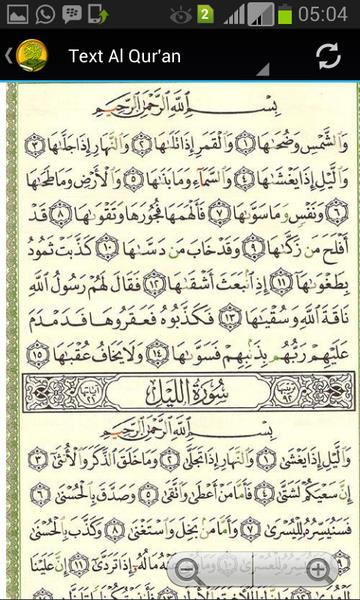 2
05:04
Text Al Qur'an
بِسْمِ اللَّهِ الرَّحْمَٰنِ الرَّحِيمِ
وَالشَّمْسِ وَضُحَاهَا ١ وَالْقَمَرِ إِذَا تَلَاهَا ٢ وَالنَّهَارِ إِذَا جَلَّاهَا ٣
وَاللَّيْلِ إِذَا يَغْشَاهَا ٤ وَالسَّمَاءِ وَمَا بَنَاهَا ٥ وَالْأَرْضِ وَمَا طَحَاهَا
٦ وَنَفْسٍ وَمَا سَوَّاهَا ٧ فَأَلْهَمَهَا فُجُورَهَا وَتَقْوَاهَا ٨ قَدْ
أَفْلَحَ مَن زَكَّاهَا ٩ وَقَدْ خَابَ مَن دَسَّاهَا ١٠ كَذَّبَتْ ثَمُودُ
بِطَغْوَاهَا ١١ إِذِ انبَعَثَ أَشْقَاهَا ١٢ فَقَالَ لَهُمْ رَسُولُ اللَّهِ
نَاقَةَ اللَّهِ وَسُقْيَاهَا ١٣ فَكَذَّبُوهُ فَعَقَرُوهَا فَدَمْدَمَ
عَلَيْهِمْ رَبُّهُم بِذَنبِهِمْ فَسَوَّاهَا ١٤ وَلَا يَخَافُ عُقْبَاهَا ١٥
سُورَةُ اللَّيْلِ
بِسْمِ اللَّهِ الرَّحْمَٰنِ الرَّحِيمِ
وَاللَّيْلِ إِذَا يَغْشَىٰ ١ وَالنَّهَارِ إِذَا تَجَلَّىٰ ٢ وَمَا خَلَقَ الذَّكَرَ وَالْأُنثَىٰ ٣
إِنَّ سَعْيَكُمْ لَشَتَّىٰ ٤ فَأَمَّا مَنْ أَعْطَىٰ وَاتَّقَىٰ ٥ وَصَدَّقَ بِالْحُسْنَىٰ ٦
فَسَنُيَسِّرُهُ لِلْيُسْرَىٰ ٧ وَأَمَّا مَن بَخِلَ وَاسْتَغْنَىٰ ٨ وَكَذَّبَ بِالْحُسْنَىٰ
٩ فَسَنُيَسِّرُهُ لِلْعُسْرَىٰ ١٠ وَمَا يُغْنِي عَنْهُ مَالُهُ إِذَا تَرَدَّىٰ ١١ إِنَّ عَلَيْنَا